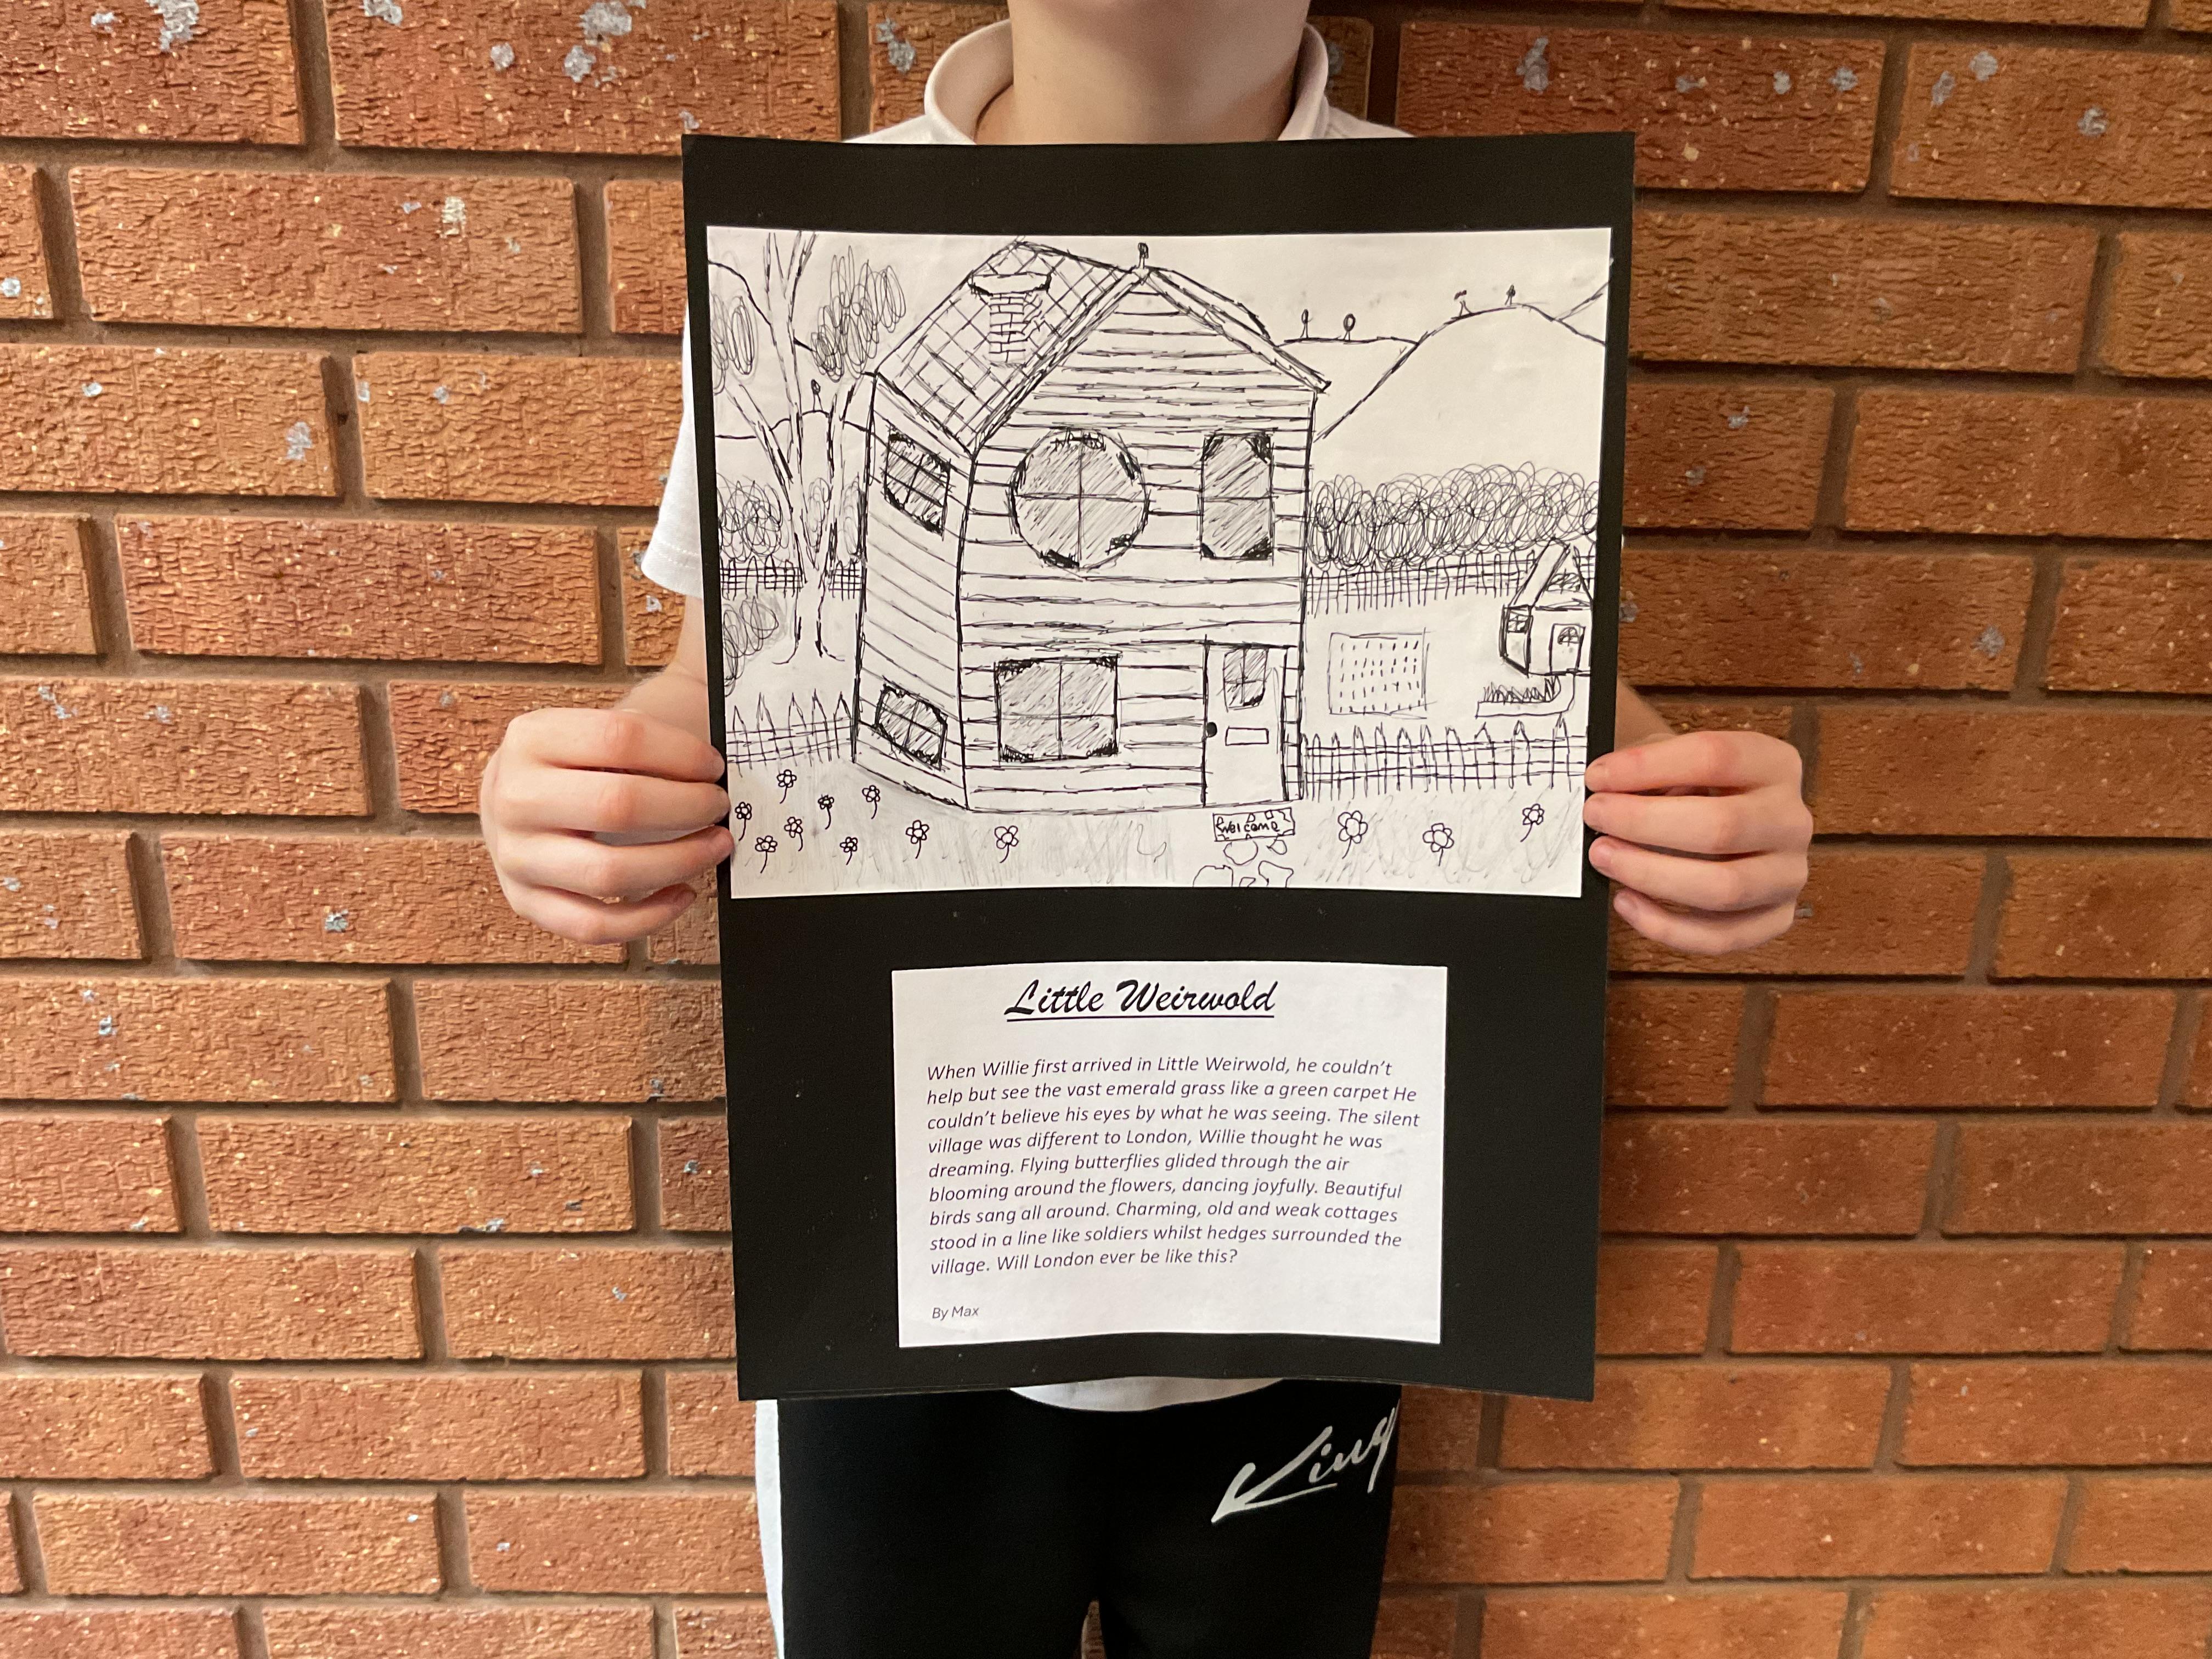 welcome
Little Weirwold
When Willie first arrived in Little Weirwold, he couldn't
help but see the vast emerald grass like a green carpet He
couldn't believe his eyes by what he was seeing. The silent
village was different to London, Willie thought he was
dreaming. Flying butterflies glided through the air
blooming around the flowers, dancing joyfully. Beautiful
birds sang all around. Charming, old and weak cottages
stood in a line like soldiers whilst hedges surrounded the
village. Will London ever be like this?
By Max
King